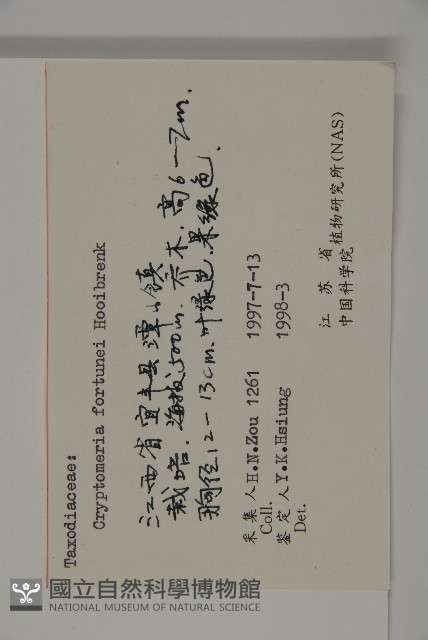 Taxodiaceae:
Cryptomeria fortunei Hooibrenk
江西省宜丰县潭山镇
栽培.海拔500m.乔木.高6—7m.
胸径12-13cm.叶绿色.果绿色.
采集人H.N.Zou 1261 1997-7-13
Coll.
鉴定人Y.K.Hsiung 1998-3
Det.
江苏省植物研究所(NAS)
中国科学院
國立自然科學博物館
NATIONAL MUSEUM OF NATURAL SCIENCE